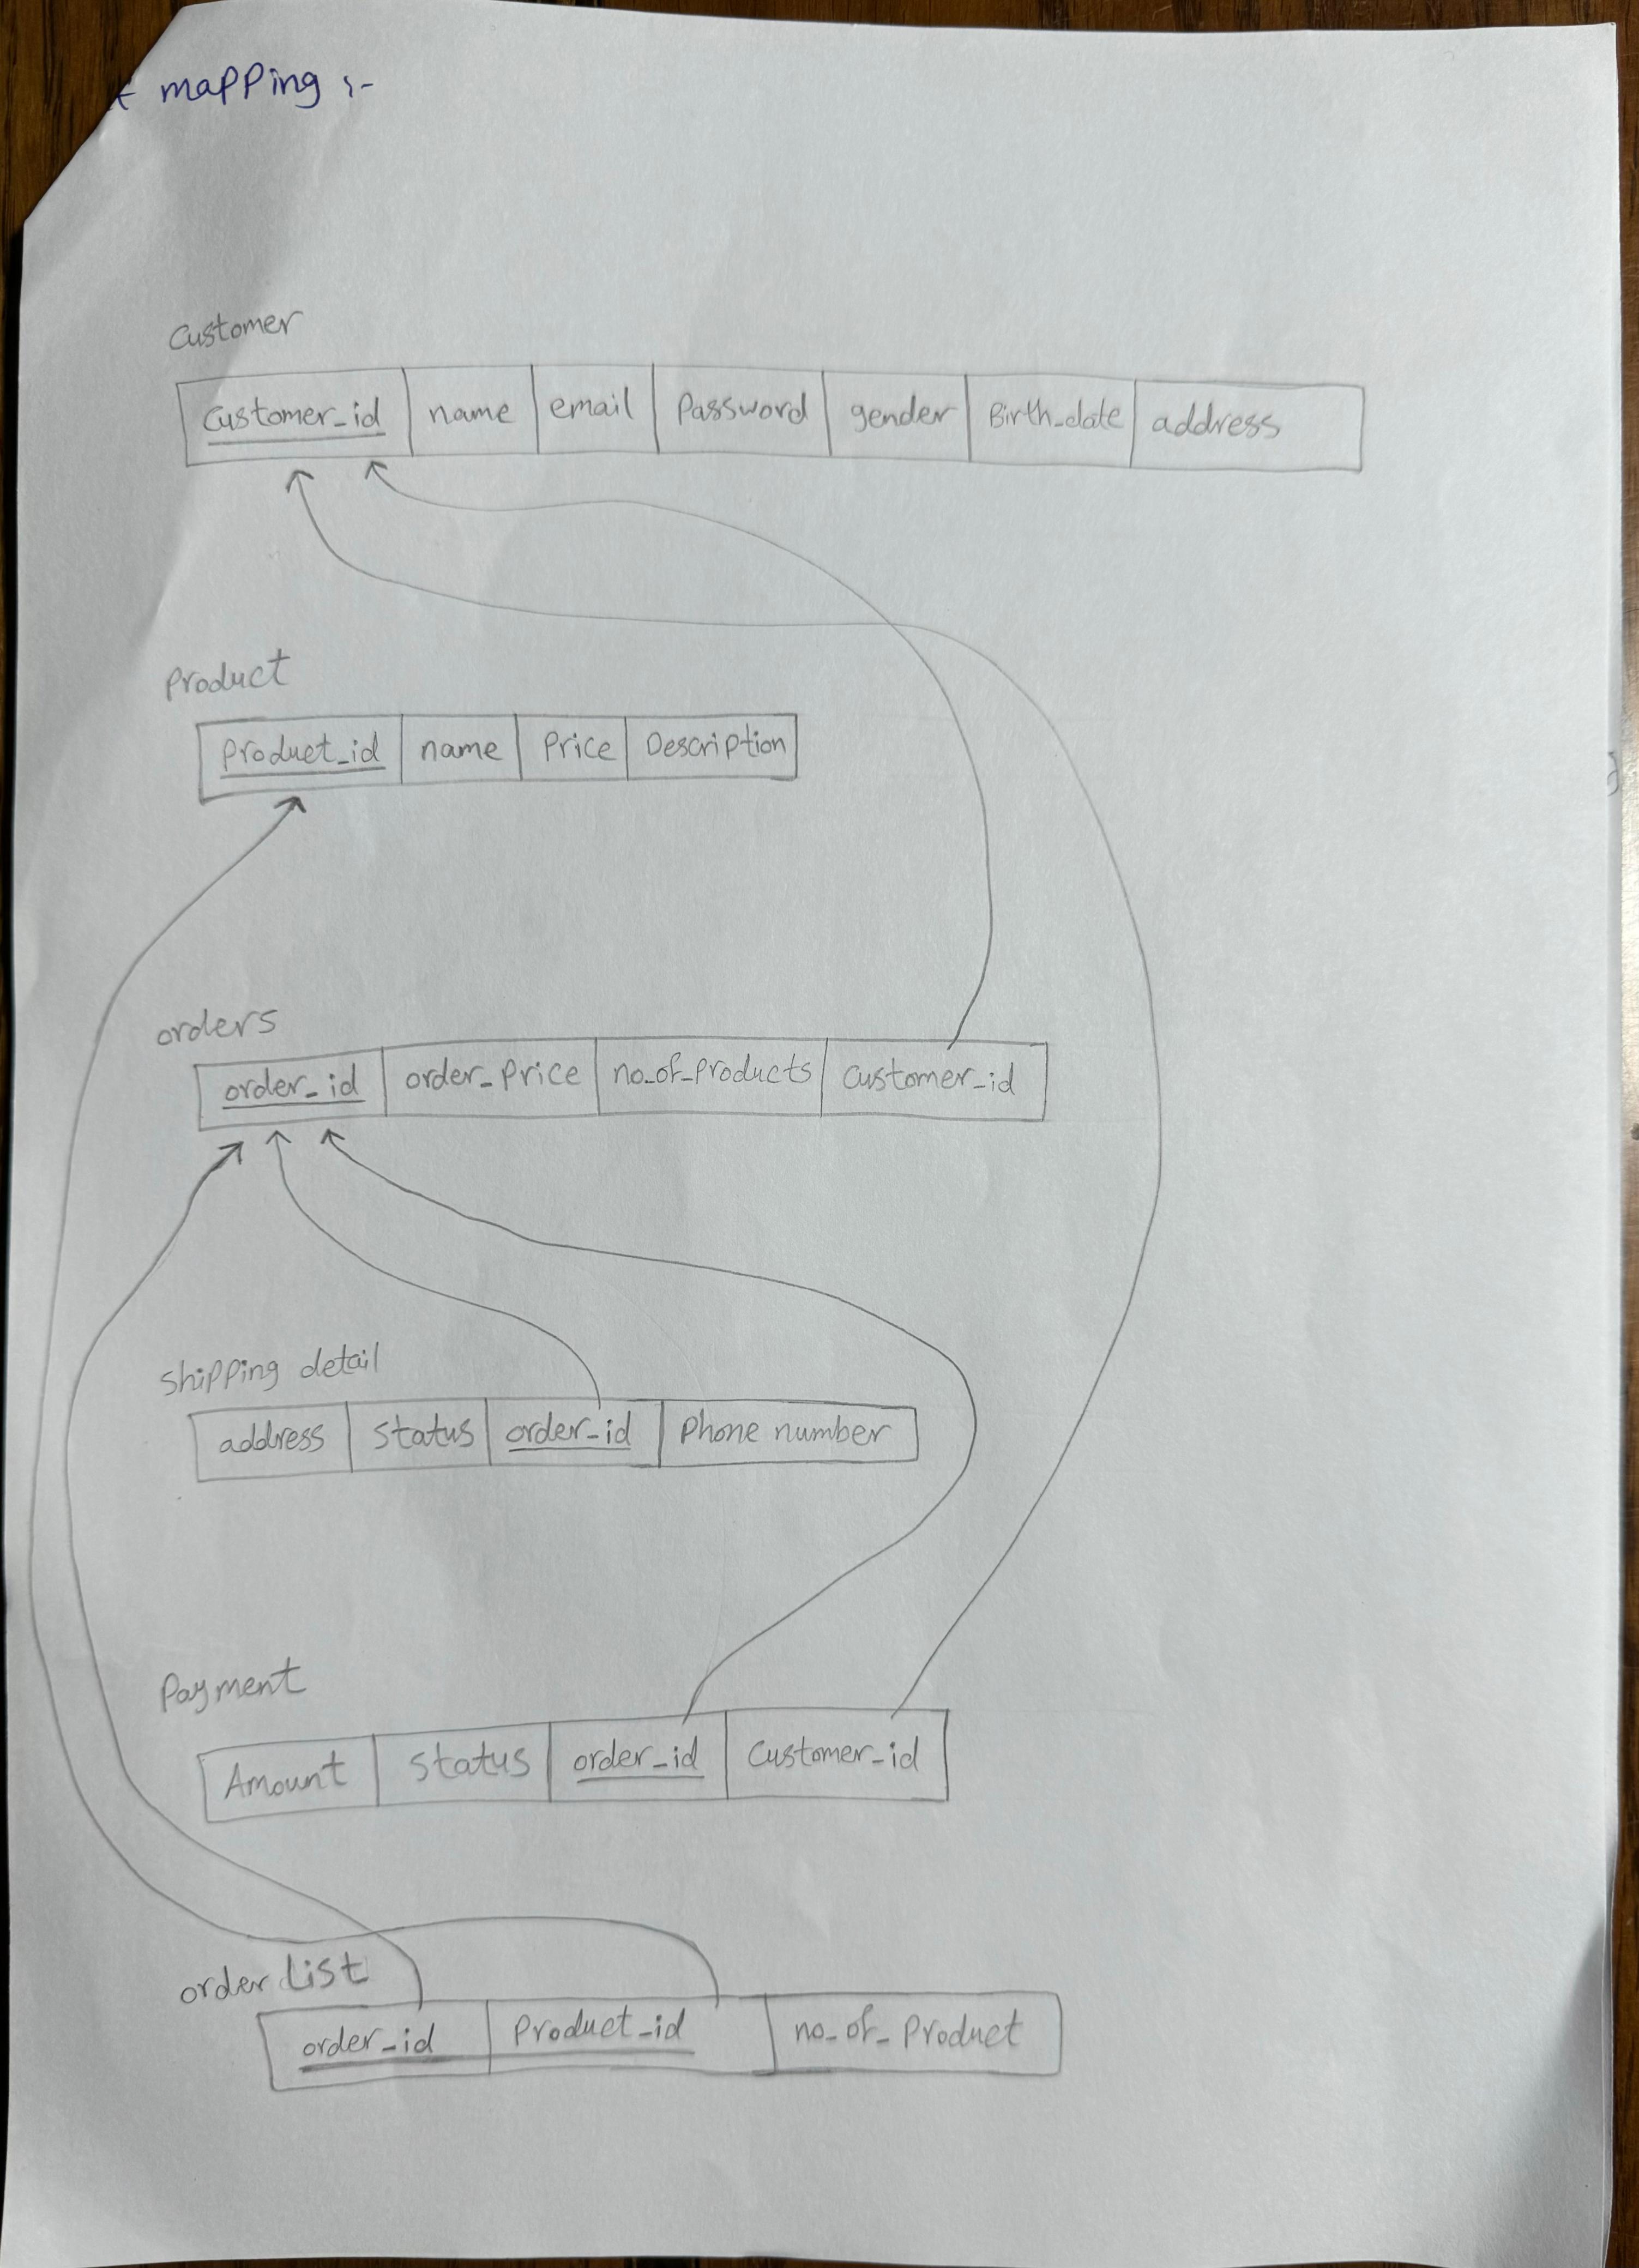 mapping :-
Customer
Customer_id name email Password gender Birth_date address
Product
Product_id name Price Description
orders
order_id order_Price no_of_Products Customer_id
Shipping detail
address Status order_id Phone number
Payment
Amount Status order_id Customer_id
order List
order_id Product_id no_of_Product